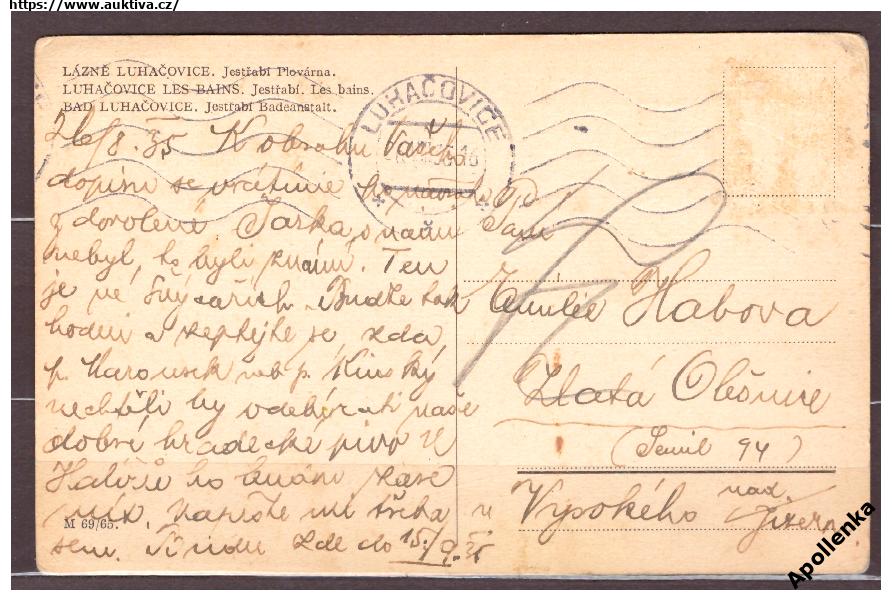 https://www.auktiva.cz/
LÁZNĚ LUHAČOVICE. Jestřabí Plovárna.
LUHAČOVICE LES BAINS. Jestřabí. Les bains.
BAD LUHAČOVICE. Jestřabí Badeanstalt.
LUHAČOVICE
26/8. 35 K obsahu Vašeho
dopisu se vrátíme po návratu
z dovolené Jarka s námi
nebyl, to byli známí. Ten
je ve Švýcařích. Buďte tak
hodní a zeptejte se, zda
p. nebo p. Kinský
nechtěli by odebírati naše
dobré hradecké pivo. V
ho
Napište mi třeba
sem. Budu zde do 15./9. 35
M 69/65.
Paní
Amálie Habova
Zlatá Olešnice
(Semil 94)
u Vysokého nad Jizerou
Apollenka